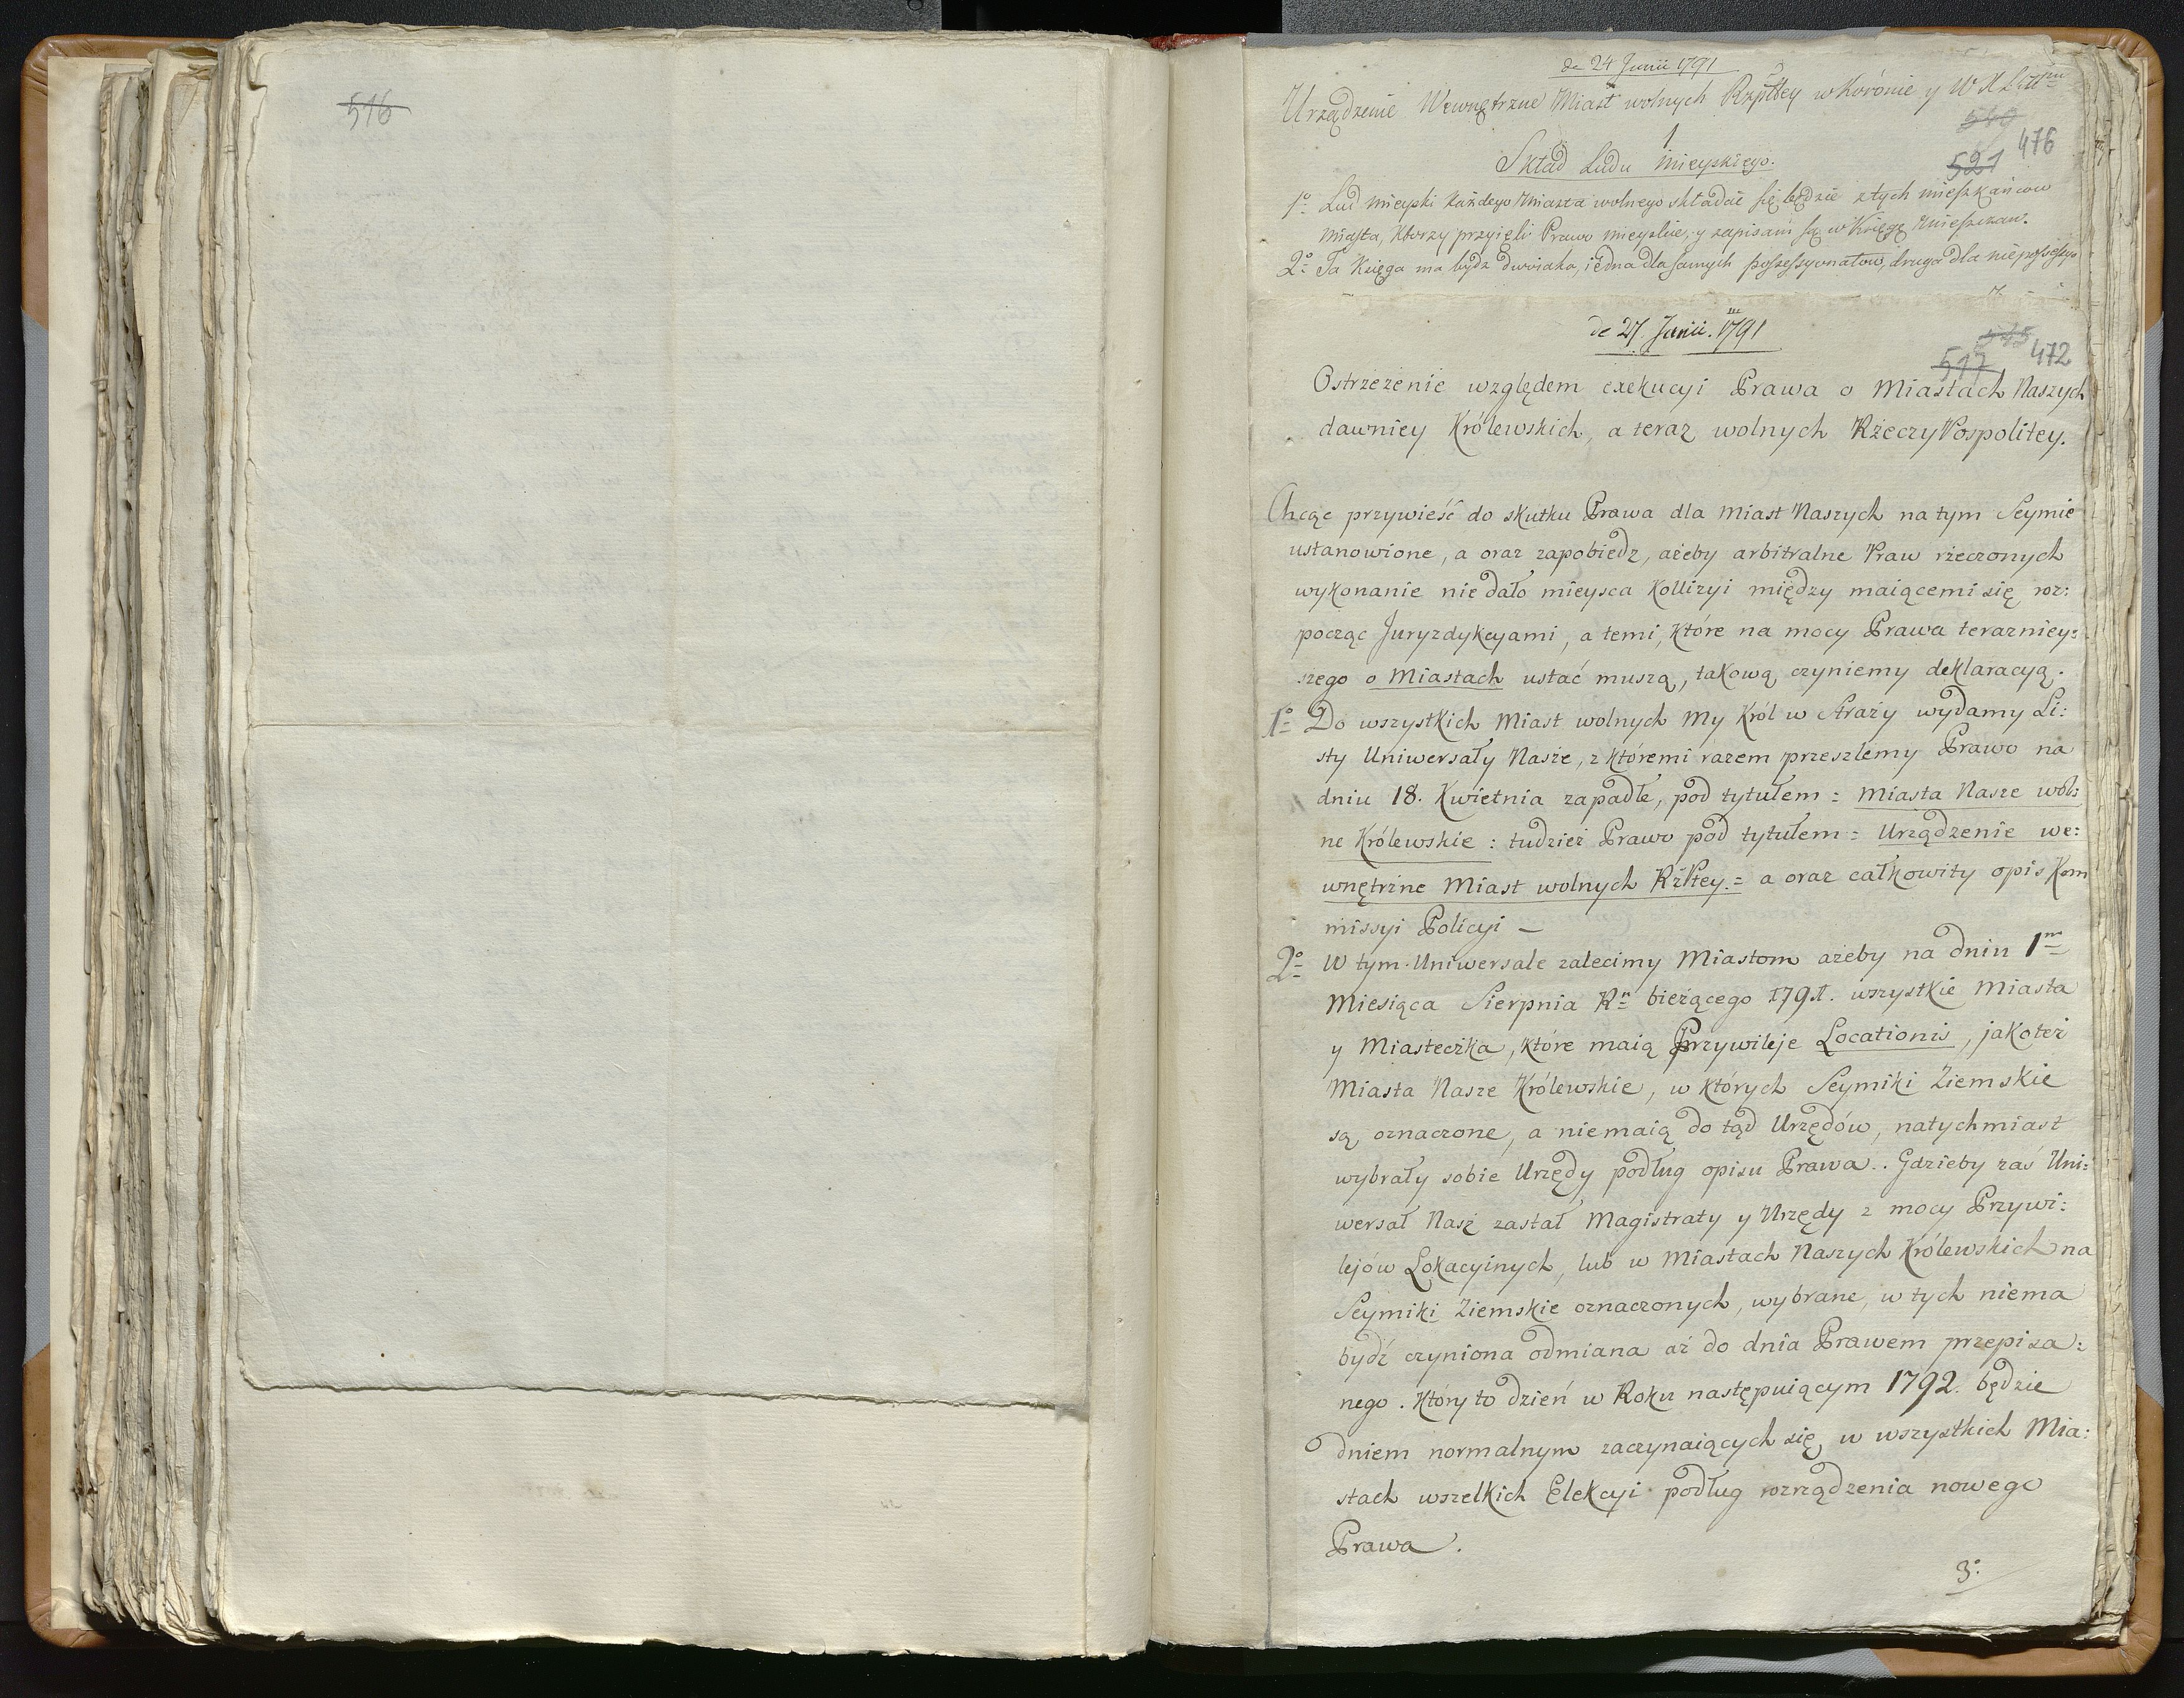 516
de 24 Junii 1791
Urządzenie Wewnętrzne Miast wolnych Rzpltey w Koronie y W X Litt
540
1
476
Skład Ludu mieyskiego.
521
1º Lud mieyski każdego Miasta wolnego składać się będzie z tych mieszkańcow
miasta, ktorzy przyięli Prawo mieyskie, y zapisani są w Księgę Mieszczan.
2º Ta Księga ma bydz dwoiaka, iedna dla samych possessyonatow, druga dla nieposessyo
de 27 Junii. 1791
515
517 472
Ostrzeżenie względem exekucyi Prawa o Miastach Naszych
dawniey Królewskich, a teraz wolnych Rzeczy Pospolitey.
Chcąc przywieść do skutku Prawa dla Miast Naszych na tym Seymie
ustanowione, a oraz zapobiedz, ażeby arbitralne Praw rzeczonych
wykonanie nie dało mieysca Kollizyi między maiącemi się roz:
począc Juryzdykcyami, a temi, które na mocy Prawa terazniey:
szego o Miastach ustać muszą, takową czyniemy deklaracyą.
1º Do wszystkich Miast wolnych My Król w Straży wydamy Li:
sty Uniwersały Nasze, z któremi razem przeszlemy Prawo na
dniu 18. Kwietnia zapadłe, pod tytułem = Miasta Nasze wol:
ne Królewskie : tudzież Prawo pod tytułem = Urządzenie we:
wnętrzne Miast wolnych RzPtey = a oraz całkowity opis Kom
missyi Policyi —
2º W tym Uniwersale zalecimy Miastom ażeby na dniu 1m
Miesiąca Sierpnia Ru bieżącego 1791. wszystkie Miasta
y Miasteczka, które maią Przywileje Locationis, jakoteż
Miasta Nasze Królewskie, w których Seymiki Ziemskie
są oznaczone, a niemaią do tąd Urzędów, natychmiast
wybrały sobie Urzędy podług opisu Prawa. Gdzieby zaś Uni:
wersał Nasz zastał Magistraty y Urzędy z mocy Przywi:
lejów Lokacyinych, lub w Miastach Naszych Królewskich na
Seymiki Ziemskie oznaczonych, wybrane, w tych niema
bydź czyniona odmiana aż do dnia Prawem przepisa:
nego. Który to dzień w Roku następuiącym 1792. będzie
dniem normalnym zaczynaiących się w wszystkich Mia:
stach wszelkich Elekcyi podług rozrządzenia nowego
Prawa.
3º